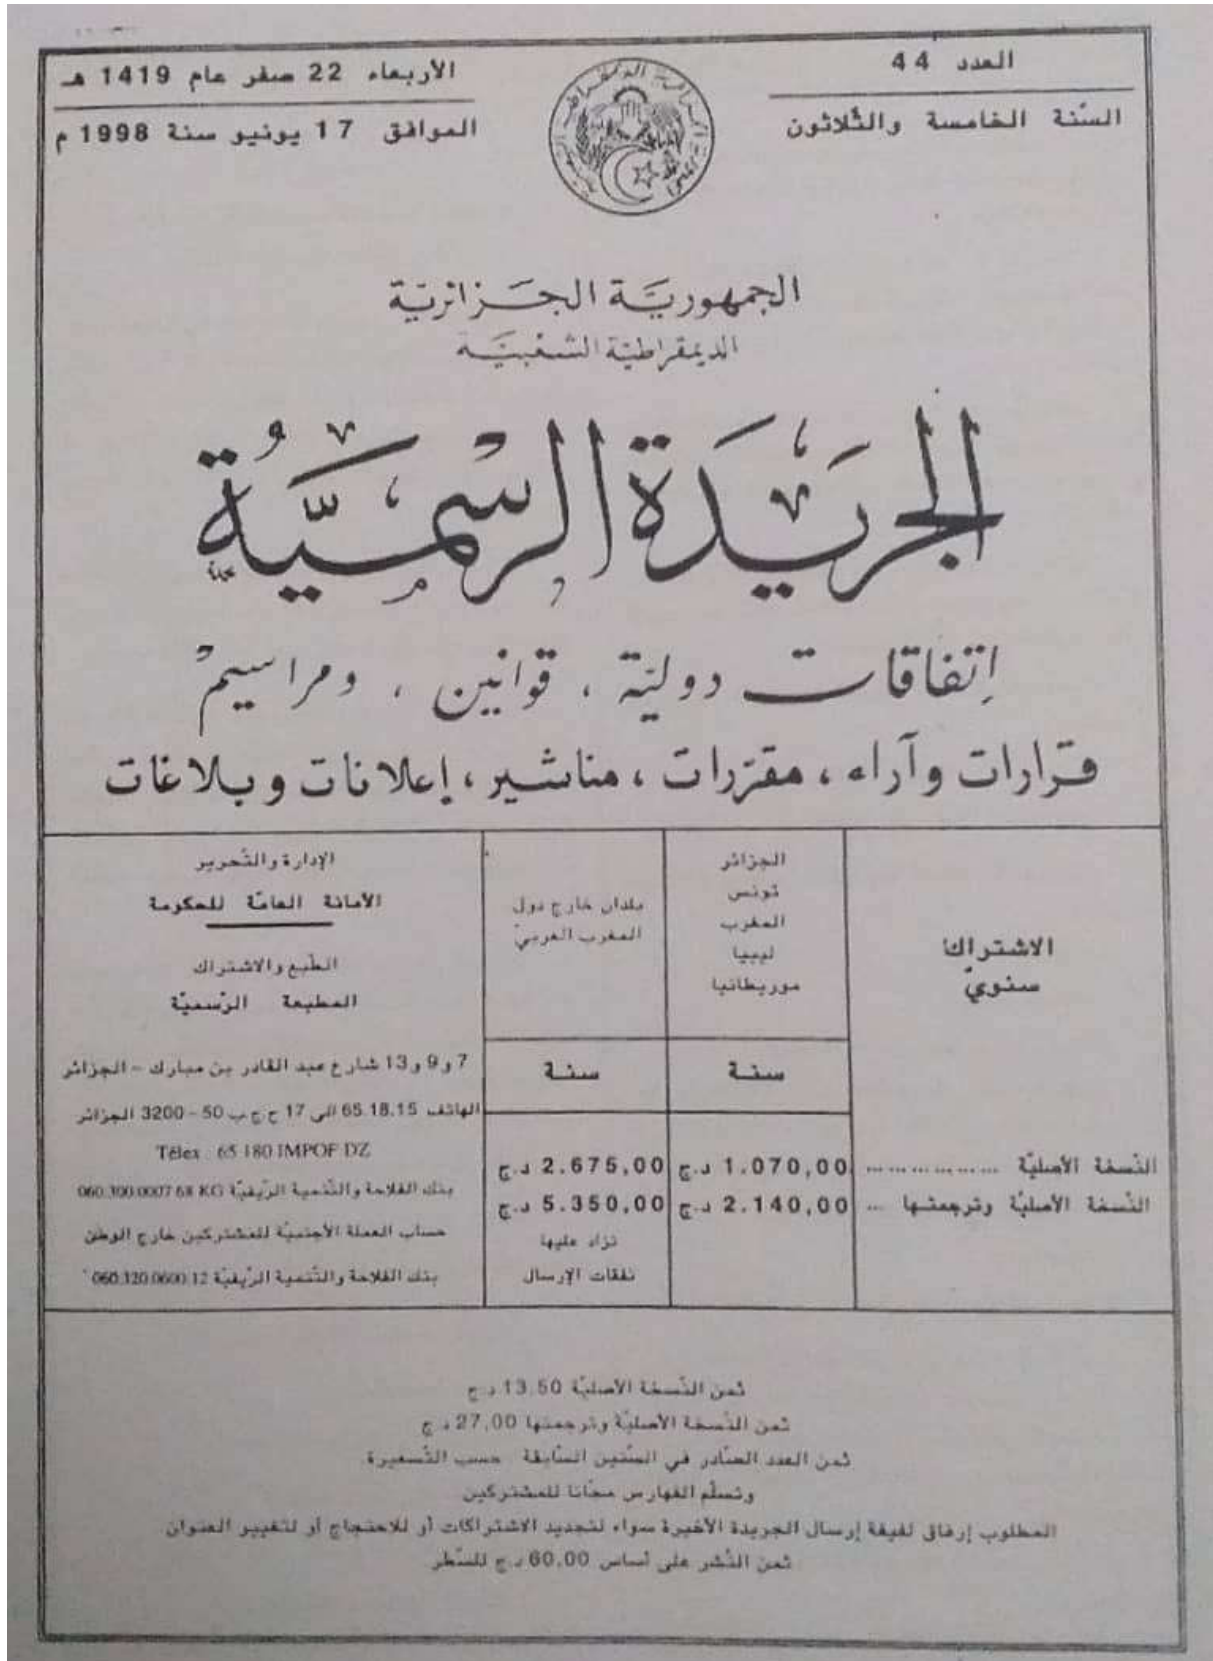 العدد 44
السّنة الخامسة والثّلاثون
الأربعاء 22 صفر عام 1419 هـ
الموافق 17 يونيو سنة 1998 م
الجمهوريّة الجزائريّة
الديمقراطيّة الشعبيّة
الجريدة الرسميّة
إتفاقات دوليّة ، قوانين ، ومراسيم
قرارات وآراء ، مقرّرات ، مناشير ، إعلانات وبلاغات
الاشتراك
سنويّ
الجزائر
تونس
المغرب
ليبيا
موريطانيا
بلدان خارج دول
المغرب العربيّ
سنة
سنة
النّسخة الأصليّة ........ 1.070,00 د.ج 2.675,00 د.ج
النّسخة الأصليّة وترجمتها ... 2.140,00 د.ج 5.350,00 د.ج
تزاد عليها
نفقات الإرسال
الإدارة والتّحرير
الأمانة العامّة للحكومة
الطّبع والاشتراك
المطبعة الرّسميّة
7 و 9 و 13 شارع عبد القادر بن مبارك - الجزائر
الهاتف 65.18.15 الى 17 ح.ج.ب 50 - 3200 الجزائر
Télex : 65 180 IMPOF DZ
بنك الفلاحة والتّنمية الرّيفيّة 060.300.0007 68 KG
حساب العملة الأجنبيّة للمشتركين خارج الوطن
بنك الفلاحة والتّنمية الرّيفيّة 060.320.0600.12
ثمن النّسخة الأصليّة 13,50 د.ج
ثمن النّسخة الأصليّة وترجمتها 27,00 د.ج
ثمن العدد الصّادر في السّنين السّابقة : حسب التّسعيرة.
وتسلّم الفهارس مجّانا للمشتركين
المطلوب إرفاق لفيفة إرسال الجريدة الأخيرة سواء لتجديد الاشتراكات أو للاحتجاج أو لتغيير العنوان
ثمن النّشر على أساس 60,00 د.ج للسّطر.